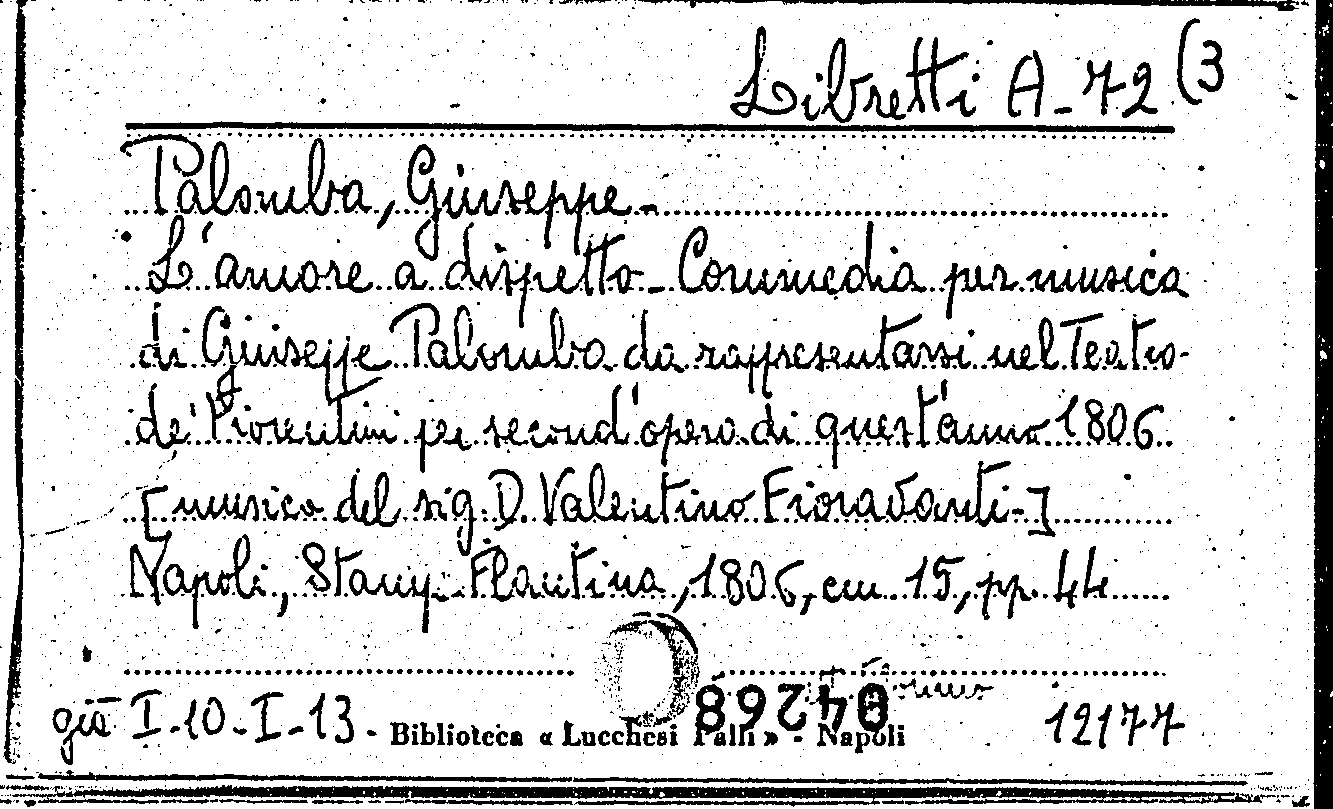 Libretti A-72 (3
Palomba, Giuseppe -
L'amore a dispetto - Commedia per musica
di Giuseppe Palomba da rappresentarsi nel Teatro
de' Fiorentini per second'opera di quest'anno 1806
[musica del sig. D. Valentino Fioravanti -]
Napoli, Stamp. Flautina, 1806, cm. 15, pp. 44
già I-10-I-13 -
Biblioteca « Lucchesi Palli » - Napoli
04268
12177